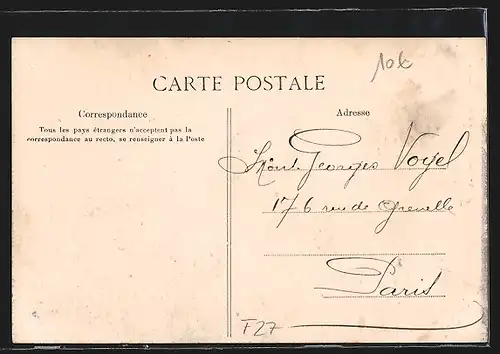 10€
CARTE POSTALE
Correspondance
Tous les pays étrangers n'acceptent pas la
correspondance au recto, se renseigner à la Poste
Adresse
Georges Vogel
176 rue de Grenelle
Paris
F27